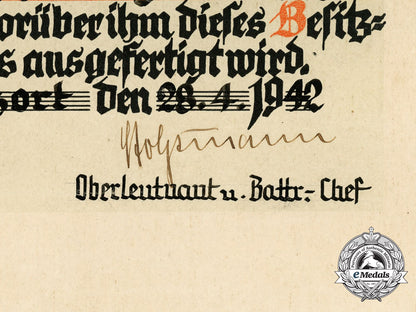 orüber ihm dieses Besitz=
s ausgefertigt wird.
sort den 28.4.1942
Holzmann
Oberleutnant u. Battr.-Chef
eMedals